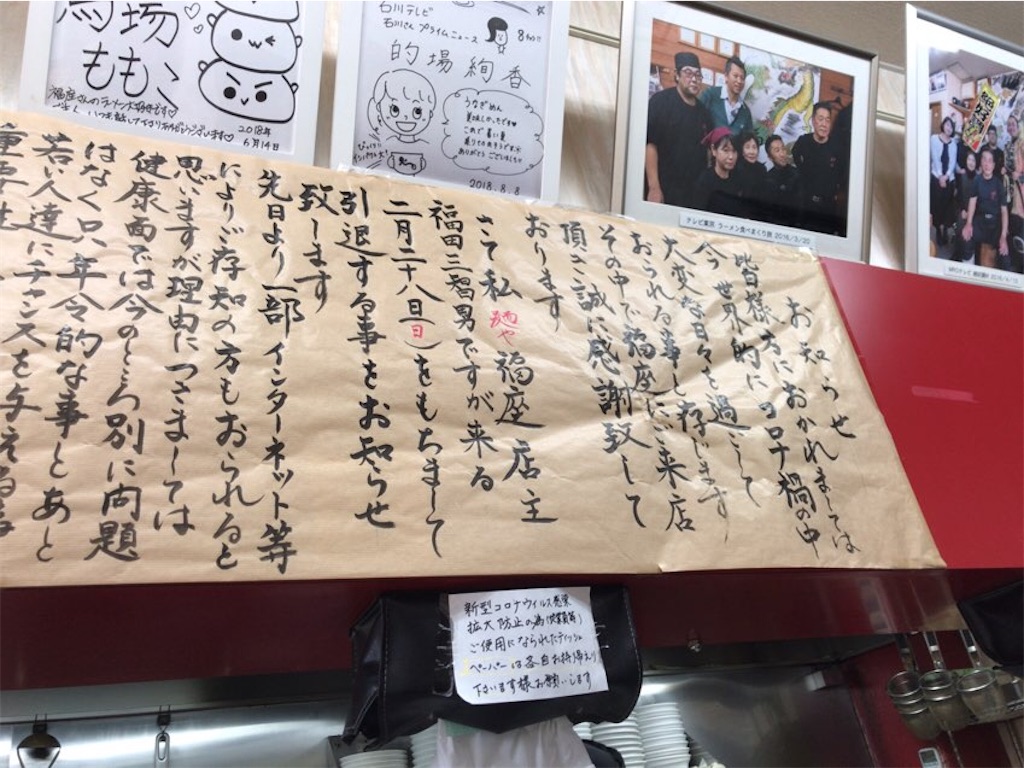 お知らせ
皆様方におかれましては
今世界的にコロナ禍の中
大変な日々を過ごして
おられる事と存じます
その中で福座にご来店
頂き誠に感謝致して
おります
さて私 麺や 福座店主
福田三智男ですが来る
二月二十八日(日)をもちまして
引退する事をお知らせ
致します
先日より一部インターネット等
によりご存知の方もおられると
思いますが理由につきましては
健康面では今のところ別に問題
はなく只年令的な事とあと
若い人達にチャンスを与える事
馬場
ももこ
福座さんのラーメン大好きです♡
いつも
ございます♡
2018年
6月14日
石川テレビ
石川さん プライムニュース
的場絢香
うなぎめん
美味しかったです
この暑い夏
乗りこえられそうです
ありがとうございました!!
2018.8.8
テレビ東京 ラーメン食べまくり旅 2018/3/20
新型コロナウイルス感染
拡大防止の為
ご使用になられたティッシュ
ペーパーは各自お持ち帰り
下さいます様お願いします